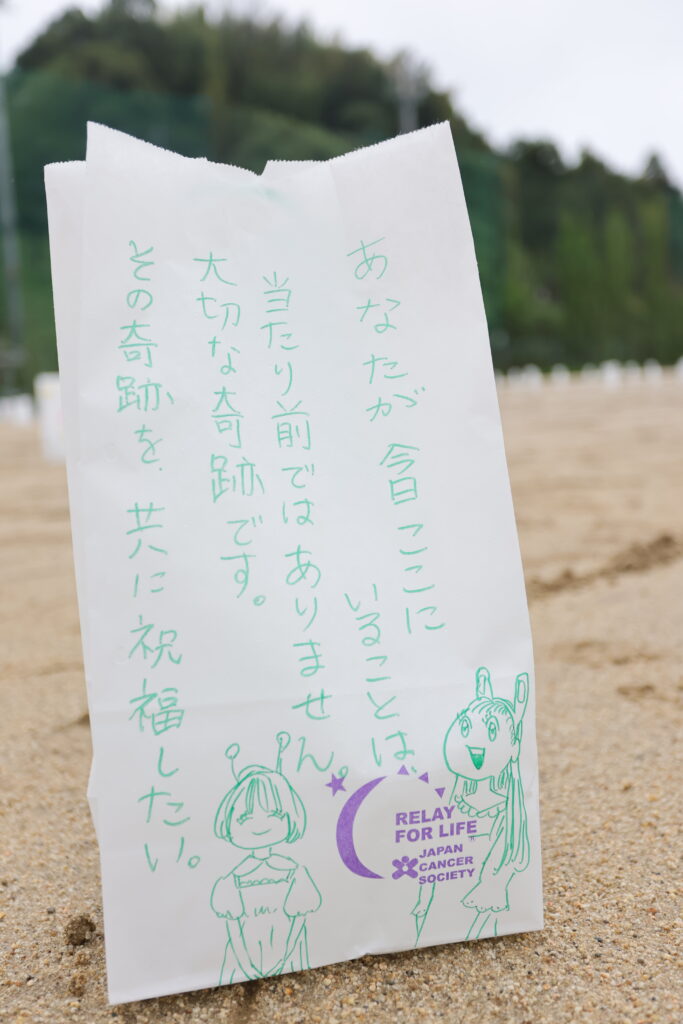 あなたが今日ここに
いることは、
当たり前ではありません。
大切な奇跡です。
その奇跡を、共に祝福したい。
RELAY
FOR LIFE
JAPAN
CANCER
SOCIETY